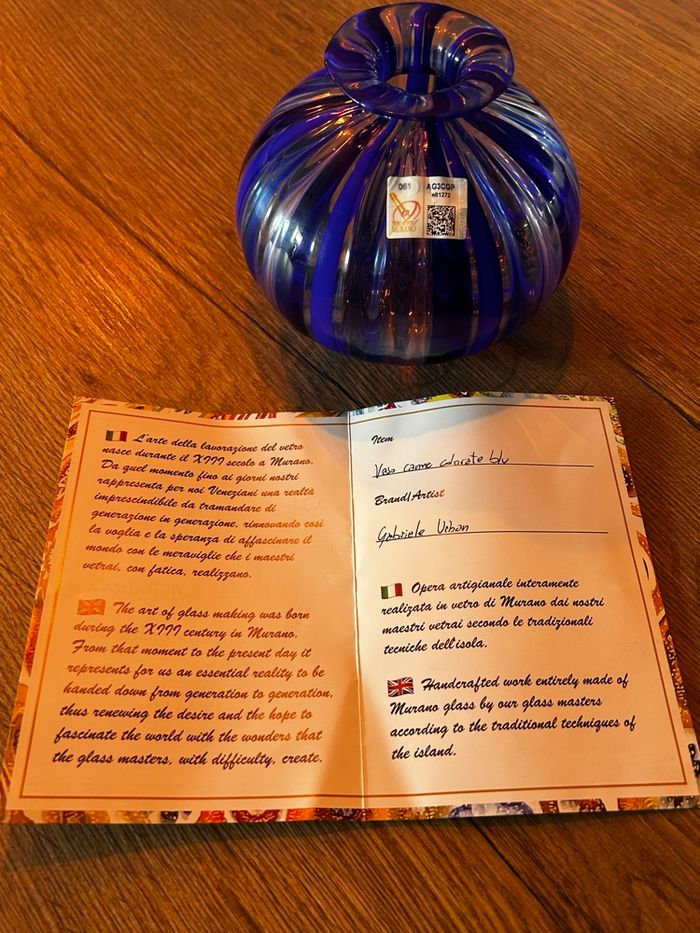 061 AG3CGP
e81272
MURANO
L'arte della lavorazione del vetro
nasce durante il XIII secolo a Murano.
Da quel momento fino ai giorni nostri
rappresenta per noi Veneziani una realtà
imprescindibile da tramandare di
generazione in generazione, rinnovando così
la voglia e la speranza di affascinare il
mondo con le meraviglie che i maestri
vetrai, con fatica, realizzano.
The art of glass making was born
during the XIII century in Murano.
From that moment to the present day it
represents for us an essential reality to be
handed down from generation to generation,
thus renewing the desire and the hope to
fascinate the world with the wonders that
the glass masters, with difficulty, create.
Item
Vaso canne colorate blu
Brand/Artist
Gabriele Urban
Opera artigianale interamente
realizzata in vetro di Murano dai nostri
maestri vetrai secondo le tradizionali
tecniche dell'isola.
Handcrafted work entirely made of
Murano glass by our glass masters
according to the traditional techniques of
the island.